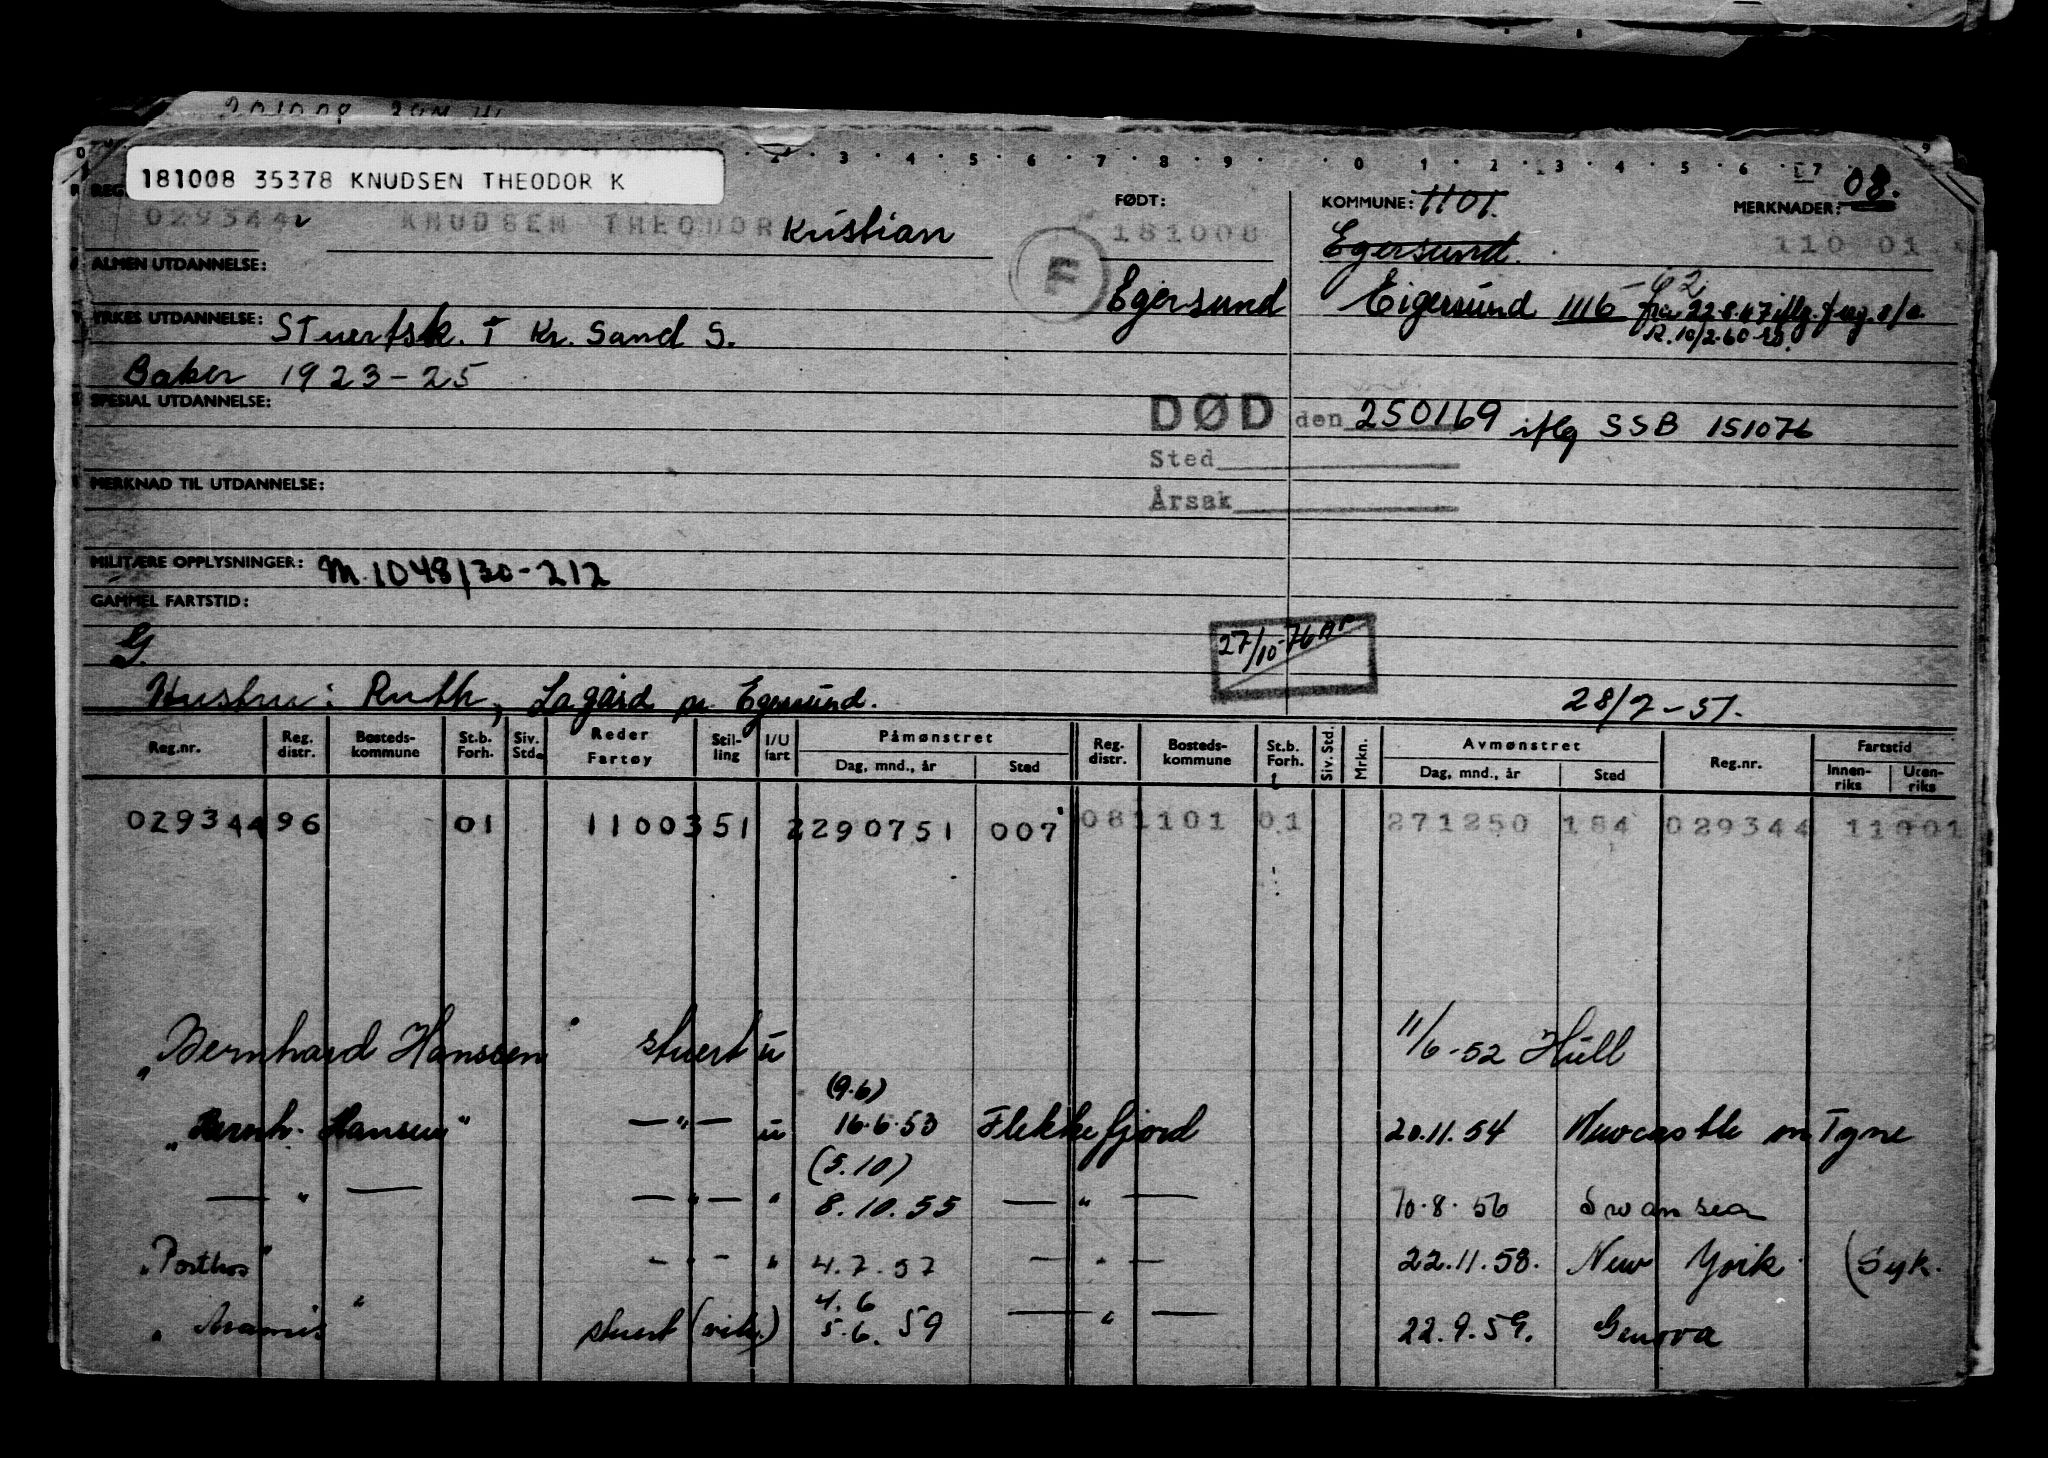 181008 35378 KNUDSEN THEODOR K
0 1 2 3 4 5 6 7 8 9 0 1 2 3 4 5 6 7
08.
FØDT:
KOMMUNE: 1101.
MERKNADER:
029344 KNUDSEN THEODOR Kristian
181008
Egersund.
110 01
F
ALMEN UTDANNELSE:
Egersund
Eigersund 1116 fra 22.8.47 iflg.
R. 10/2.60
YRKES UTDANNELSE: Stuertsk. I Kr. Sand S.
Baker 1923-25
SPESIAL UTDANNELSE:
DØD den 250169 iflg SSB 151076
Sted
MERKNAD TIL UTDANNELSE:
Årsak
MILITÆRE OPPLYSNINGER: M. 1048/30-212
GAMMEL FARTSTID:
G.
27/10-76
Hustru: Ruth, Lagård pr. Egersund.
28/7-51.
Reg.nr. Reg. distr. Bosteds-kommune St.b. Forh. Siv. Std. Reder Fartøy Stil-ling I/U fart Påmønstret Dag, mnd., år Sted Reg. distr. Bosteds-kommune St.b. Forh. Siv. Std. Mrkn. Avmønstret Dag, mnd., år Sted Reg.nr. Fartstid Innen-riks Uten-riks
029344 96 01 11003 51 2 290751 007 08 1101 01 271250 184 029344 11001
"Bernhard Hanssen" stuert u 11/6-52 Hull
(9.6)
"Bernh. Hansen" —"— u 16.6.53 Flekkefjord 20.11.54 Newcastle on Tyne
(5.10)
— " — —"— " 8.10.55 — " — 10.8.56 Swansea
"Porthos" — " — " 4.7.57 — " — 22.11.58. New York (Syk.
4.6
"Aramis" stuert (vik.) 5.6. 59 — " — 22.9.59. Genova